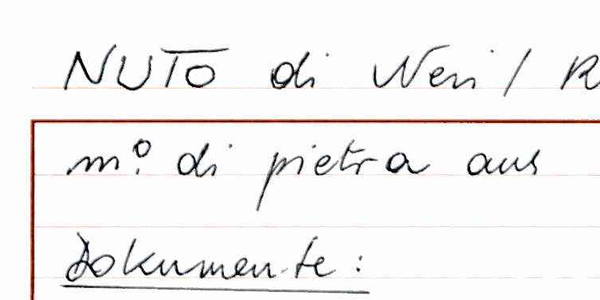 NUTO di Neri / R
m.º di pietra aus
Dokumente: